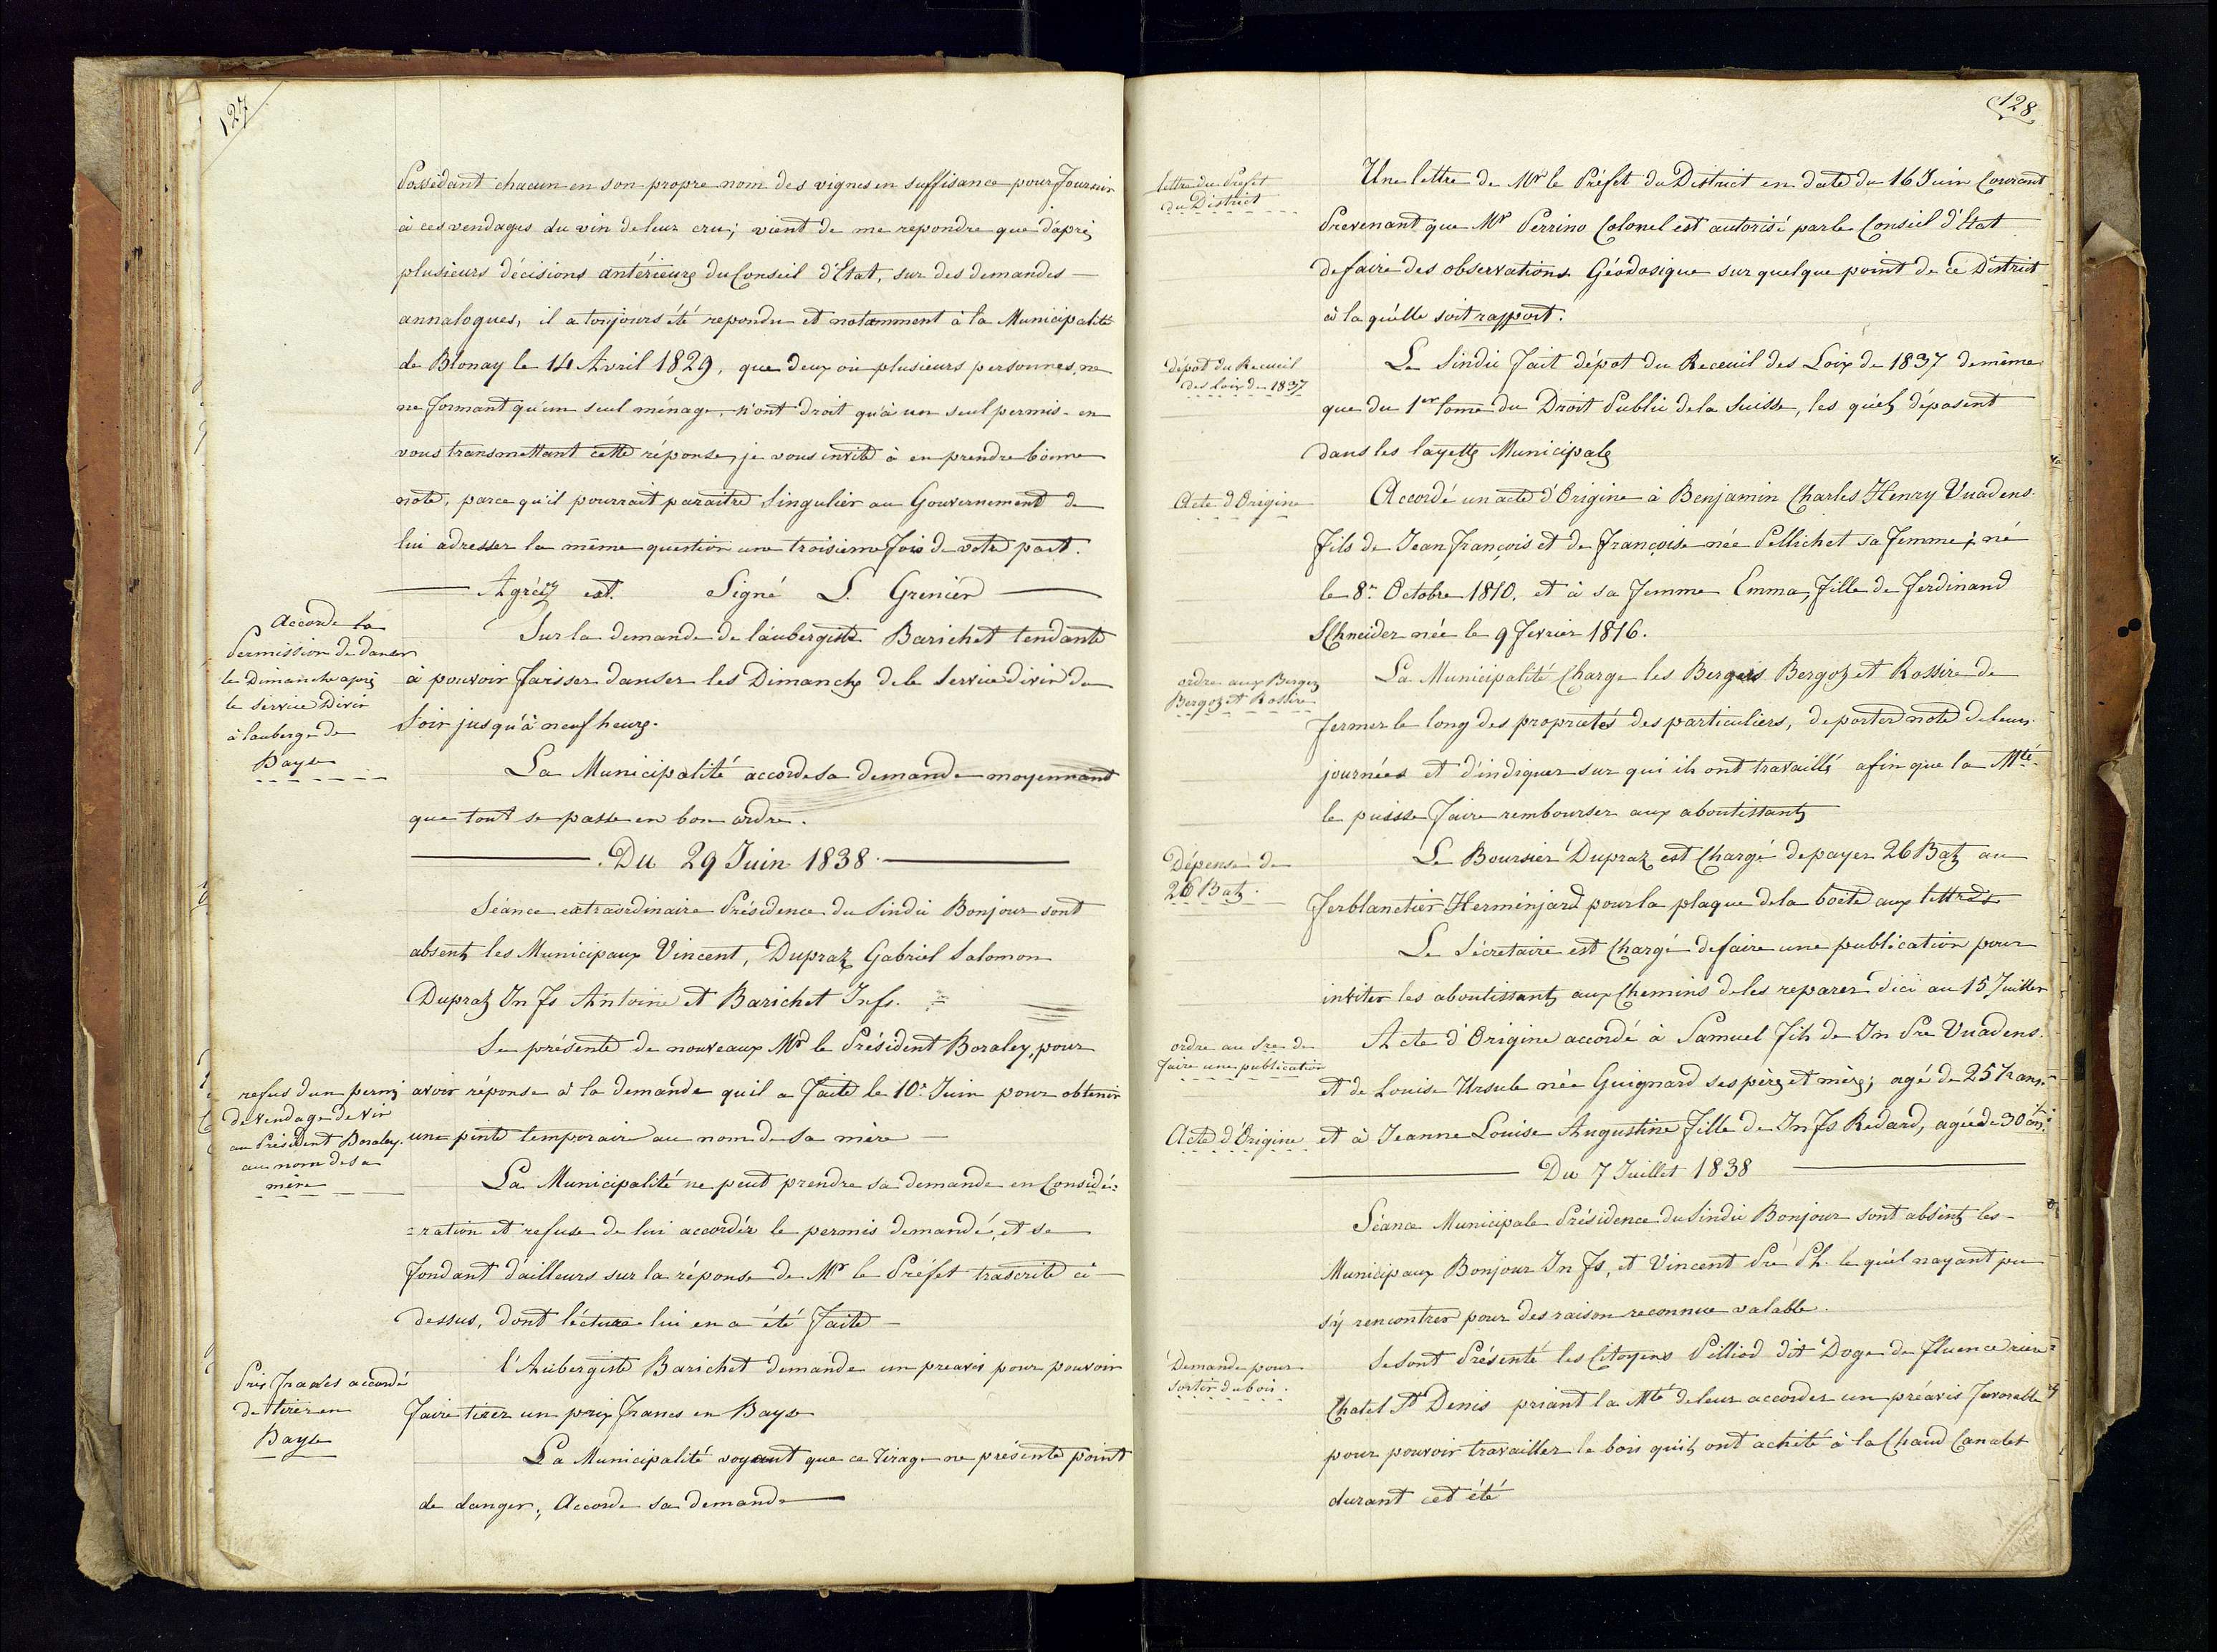 127
Possèdant chacun en son propre nom des vignes en suffisance pour Fournir
à ces vendages du vin de leur cru; vient de me repondre que d'après
plusieurs décisions antérieures du Conseil d'Etat, sur des demandes —
annalogues, il a toujours été repondu et notamment à la Municipalité
de Blonay le 14 Avril 1829, que deux ou plusieurs personnes, ne
ne formant qu'un seul ménage, n'ont droit qu'à un seul permis - en
vous transmettant cette réponse, je vous invite à en prendre bonne
note, parce qu'il pourrait paraitre Singulier au Gouvernement de
lui adresser la même question une troisième fois de votre part.
— Agréez est. Signé L. Grenier —
Accorde la
Permission de danser
le Dimanche après
le Service Divin
à l'auberge de
Bayse
Sur la demande de l'aubergiste Barichet tendante
à pouvoir faisser danser les Dimanches de le Service divin du
Soir jusqu'à neuf heures.
La Municipalité accorde sa demande moyennant
que tout se passe en bon ordre.
— Du 29 Juin 1838 —
Séance extraordinaire Présidence du Sindic Bonjour sont
absents les Municipaux Vincent, Dupraz Gabriel Salomon
Dupraz Jn Fs Antoine et Barichet Jn fs.
refus d'un permis
de vendage de vin
au Président Boraley
au nom de sa
mère
Se présente de nouveaux Mr le Président Boraley, pour
avoir réponse à la demande qu'il a faite le 10e Juin pour obtenir
une pinte temporaire au nom de sa mère —
La Municipalité ne peut prendre sa demande en Considé=
=ration et refuse de lui accordér le permis demandé, et se
fondant d'ailleurs sur la réponse de Mr le Préfet trascrite ci-
dessus, dont lécture lui en a été faite —
Prix francs accordé
de tirer en
Bayse
l'Aubergiste Barichet demande un preavis pour pouvoir
faire tirer un prix francs en Bayse
La Municipalité voyant que ce Tirage ne présente point
de danger, Accorde sa demande —
128
lettre du Préfet
du District
Une lettre de Mr le Préfet du District en date du 16 Juin Courant
Prevenant que Mr Perrino Colonel est autorisé par le Conseil d'Etat
de faire des observations Géodosique sur quelque point de ce District
à la quelle soit rapport.
dépot du Recueil
des Loix de 1837
Le Sindic fait dépot du Receuil des Loix de 1837 de même
que du 1er tome du Droit Public de la Suisse, les quels déposent
dans les layettes Municipales
Acte d'Origine
Accordé un acte d'Origine à Benjamin Charles Henry Vuadens.
fils de Jean François et de Françoise née Pellichet sa femme; né
le 8e Octobre 1810. et à sa femme Emma, fille de Ferdinand
SChneider née le 9 Fevrier 1816.
ordre aux Bergers
Bergoz et Rossire
La Municipalité Charge les Bergers Bergoz et Rossire de
fermer le long des propriétés des particuliers, de porter note de leurs
journées et d'indiquer sur qui ils ont travaillé afin que la Mté
le puisse faire rembourser aux aboutissants
Dépense de
26 Batz.
Le Boursier Dupraz est Chargé de payer 26 Batz au
ferblanctier Herminjard pour la plaque de la boëte aux lettres
Le Sécretaire est Chargé de faire une publication pour
inviter les aboutissants aux Chemins de les reparer d'ici au 15 Juillet
ordre au Sre de
faire une publication
Acte d'Origine accordé à Samuel fils de Jn Pre Vuadens.
et de Louise Ursule née Guignard ses pères et mères; agé de 25 ½ ans
Acte d'Origine
et à Jeanne Louise Augustine fille de Jn Fs Redard, agée de 30 ans
— Du 7 Juillet 1838 —
Séance Municipale Présidence du Sindic Bonjour sont absents les
Municipaux Bonjour Jn Fs, et Vincent Pre Ph. le quel nayant pu
s'y rencontrer pour des raison reconnue valable.
Demande pour
sortir du bois.
Se sont Présenté les Citoyens Pilliod dit Doge de Fluence rière
Chatel St Denis priant la Mté de leur accorder un préavis favorable
pour pouvoir travailler le bois qu'ils ont acheté à la Chaud Canalet
durant cet été